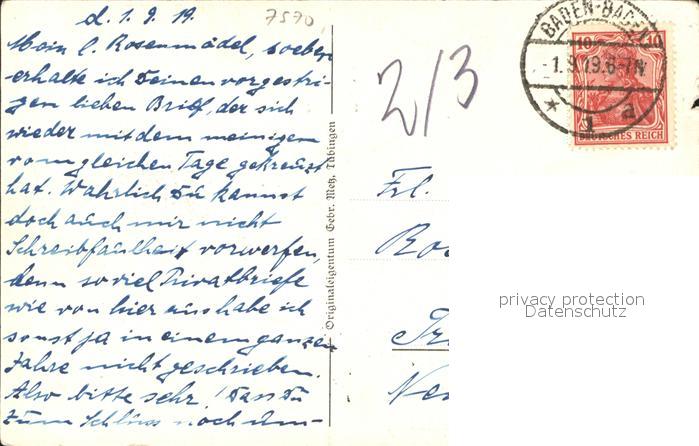 d. 1.9.19.
7570
Mein l. Rosenmädel, soeben
erhalte ich Deinen vorgestri-
gen lieben Brief, der sich
wieder mit dem meinigen
vom gleichen Tage gekreuzt
hat. Wahrlich Du kannst
doch auch mir nicht
Schreibfaulheit vorwerfen,
denn so viel Privatbriefe
wie von hier aus habe ich
sonst ja in einem ganzen
Jahre nicht geschrieben.
Also bitte sehr! Dass Du
zum Schluss noch Um-
Originaleigentum Gebr. Metz, Tübingen
2/3
BADEN-BADEN
-1.9.19.6-7N.
10 10
DEUTSCHES REICH
Frl.
privacy protection
Datenschutz